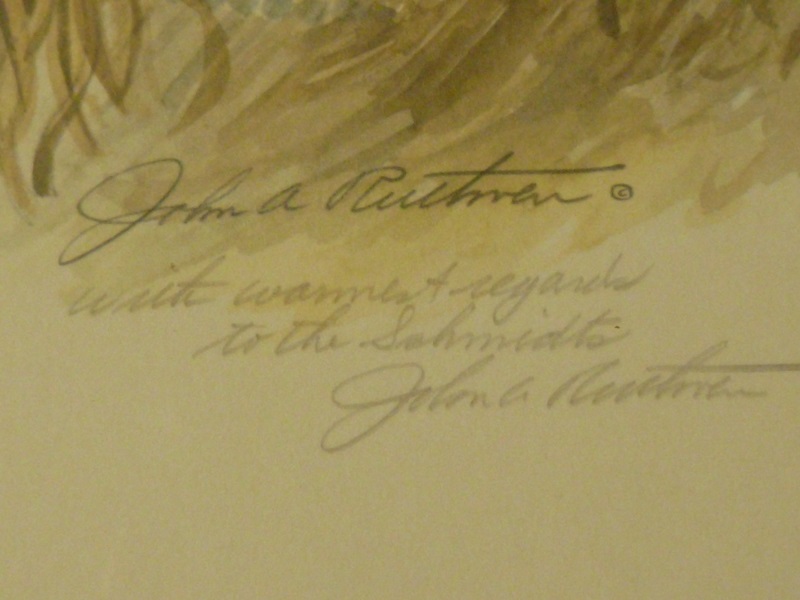 John A Ruthven ©
with warmest regards
to the Schmidts
John A Ruthven